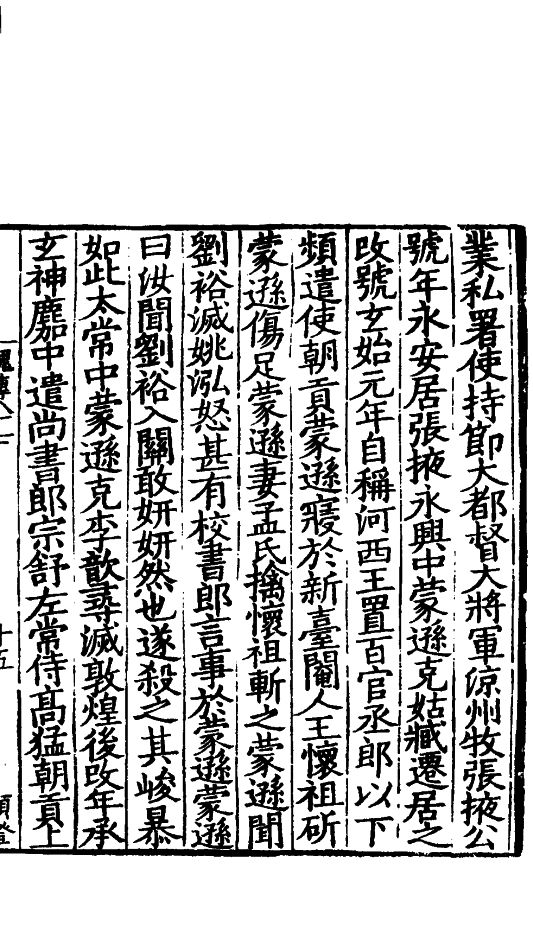 業私署使持節大都督大將軍涼州牧張掖公
號年永安居張掖永興中蒙遜克姑臧遷居之
改號玄始元年自稱河西王置百官丞郎以下
頻遣使朝貢蒙遜寢於新臺閹人王懷祖斫
蒙遜傷足蒙遜妻孟氏擒懷祖斬之蒙遜聞
劉裕滅姚泓怒甚有校書郎言事於蒙遜蒙遜
曰汝聞劉裕入關敢妍妍然也遂殺之其峻暴
如此太常中蒙遜克李歆尋滅敦煌後改年承
玄神䴥中遣尚書郎宗舒左常侍高猛朝貢上
十五